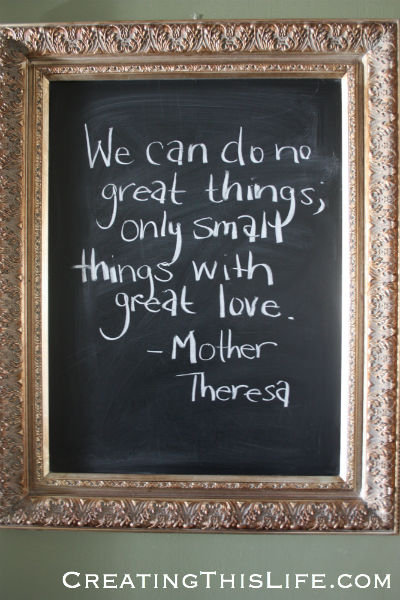 We can do no
great things;
only small
things with
great love.
-Mother
Theresa
CreatingThisLife.com